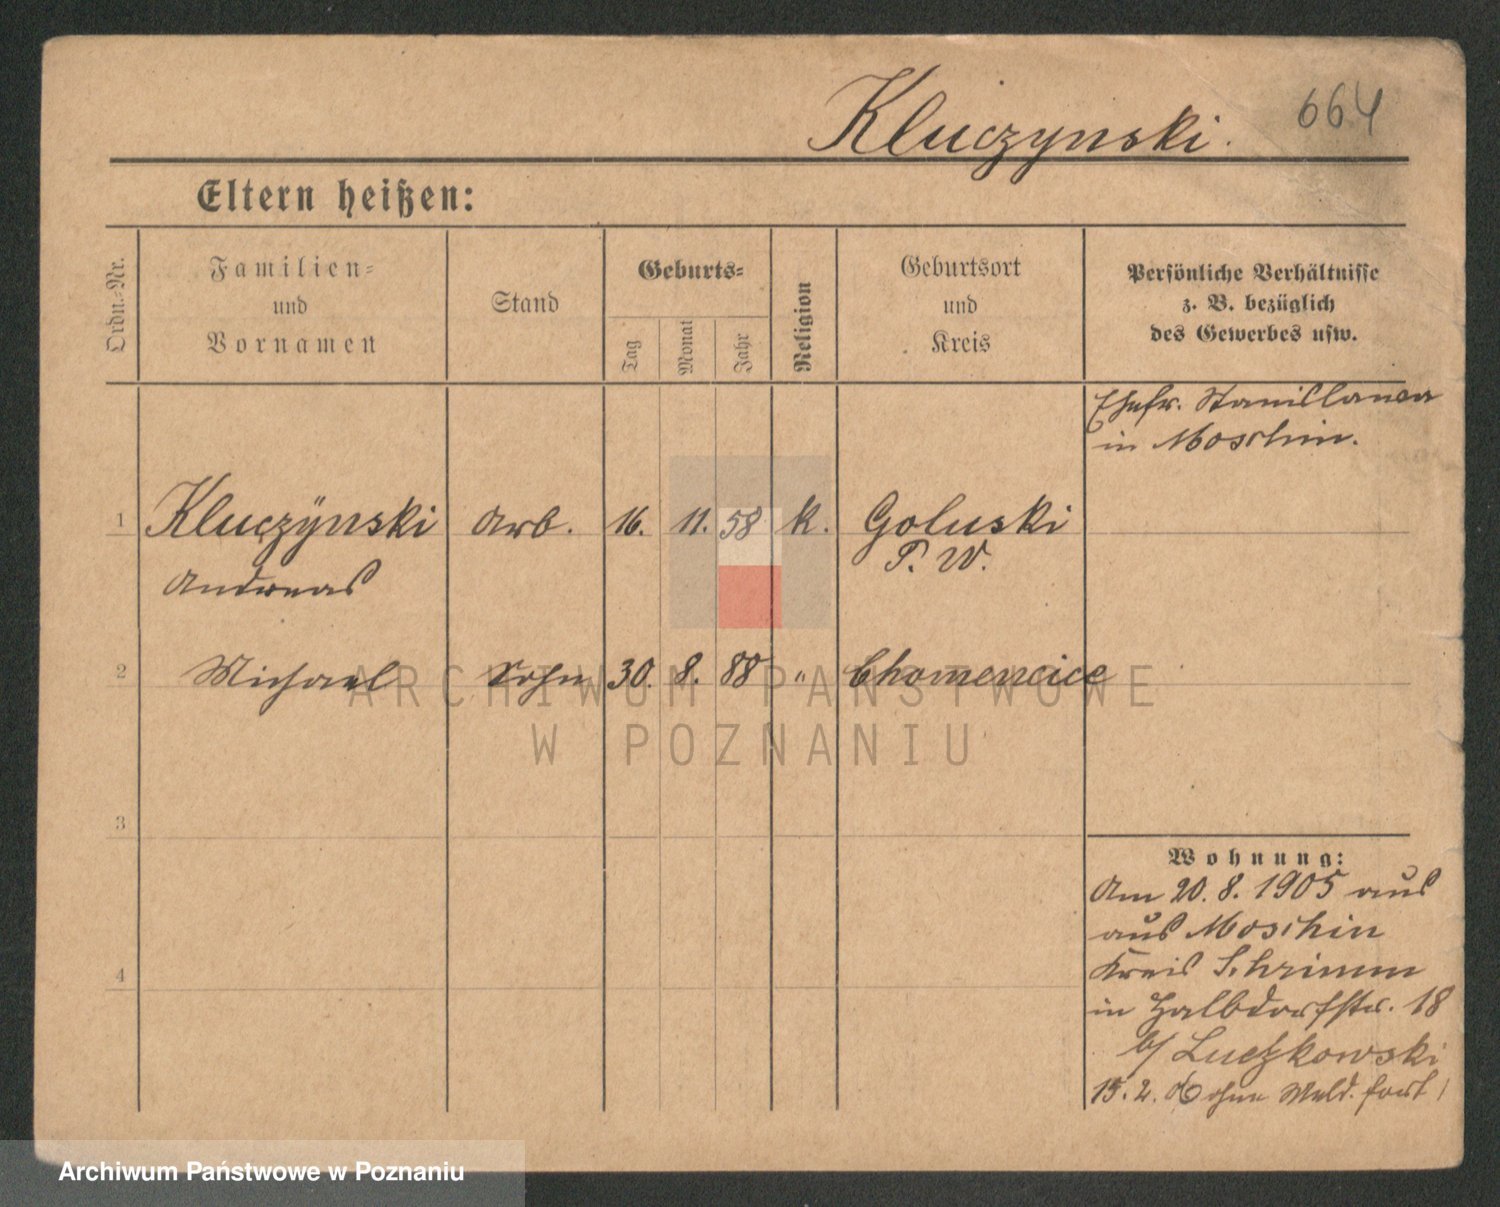 Kluczynski.
664
Eltern heißen:
Ordn.-Nr.
Familien-
und
Vornamen
Stand
Geburts-
Tag
Monat
Jahr
Religion
Geburtsort
und
Kreis
Persönliche Verhältnisse
z. B. bezüglich
des Gewerbes usw.
Ehefr. Stanislawa
in Moschin.
1 Kluczÿnski Arb. 16. 11. 58 k. Goluski
P. W.
Andreas
2 Michael Sohn 30. 8. 88 " Chomencice
ARCHIWUM PAŃSTWOWE
W POZNANIU
3
Wohnung:
Am 20. 8. 1905 aus
aus Moschin
Kreis Schrimm
4
in Halbdorfstr. 18
b/ Luczkowski
15. 2. 06 ohne Meld. fort
Archiwum Państwowe w Poznaniu